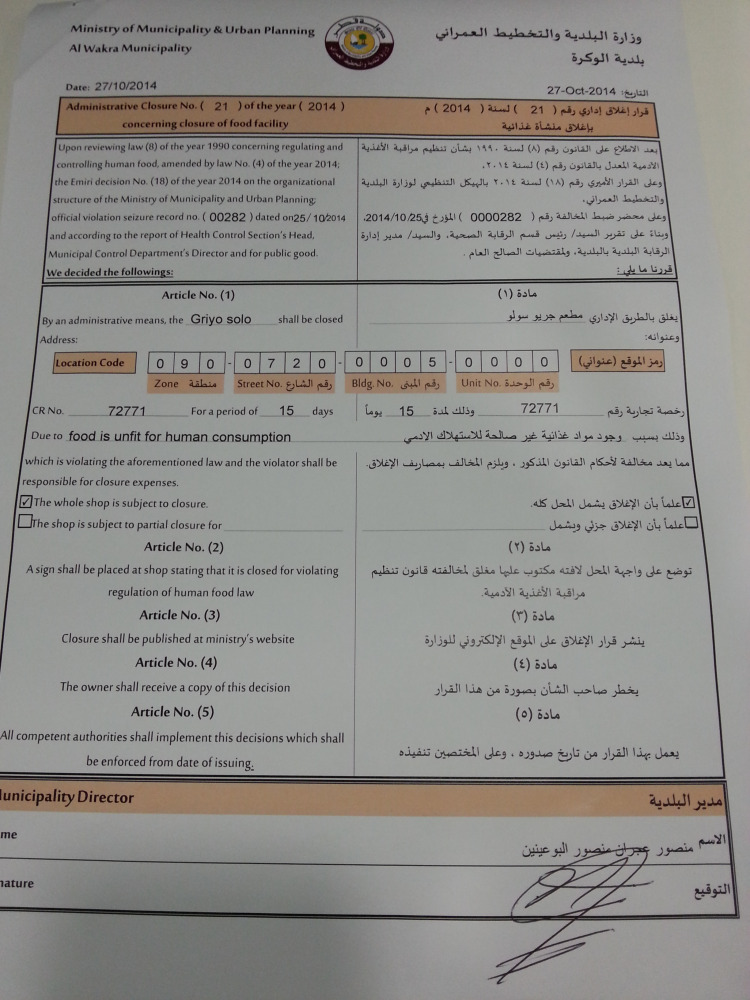 Ministry of Municipality & Urban Planning
Al Wakra Municipality
وزارة البلدية والتخطيط العمراني
بلدية الوكرة
Date: 27/10/2014
التاريخ: 27-Oct-2014
Administrative Closure No. ( 21 ) of the year ( 2014 )
concerning closure of food facility
قرار إغلاق إداري رقم ( 21 ) لسنة ( 2014 ) م
بإغلاق منشأة غذائية
Upon reviewing law (8) of the year 1990 concerning regulating and
controlling human food, amended by law No. (4) of the year 2014;
the Emiri decision No. (18) of the year 2014 on the organizational
structure of the Ministry of Municipality and Urban Planning;
official violation seizure record no. ( 00282 ) dated on25/ 10/2014
and according to the report of Health Control Section's Head,
Municipal Control Department's Director and for public good.
We decided the followings:
بعد الاطلاع على القانون رقم (٨) لسنة ١٩٩٠ بشأن تنظيم مراقبة الأغذية
الآدمية المعدل بالقانون رقم (٤) لسنة ٢٠١٤،
وعلى القرار الأميري رقم (١٨) لسنة ٢٠١٤ بالهيكل التنظيمي لوزارة البلدية
والتخطيط العمراني،
وعلى محضر ضبط المخالفة رقم ( 0000282 ) المؤرخ في2014/10/25،
وبناءً على تقرير السيد/ رئيس قسم الرقابة الصحية، والسيد/ مدير إدارة
الرقابة البلدية بالبلدية، ولمقتضيات الصالح العام .
قررنا ما يلي :
Article No. (1)
مادة (١)
By an administrative means, the Griyo solo shall be closed
يغلق بالطريق الإداري مطعم جريو سولو
Address:
وعنوانه:
Location Code
0 9 0 - 0 7 2 0 - 0 0 0 5 - 0 0 0 0
رمز الموقع (عنواني)
Zone منطقة
Street No. رقم الشارع
Bldg. No. رقم المبنى
Unit No. رقم الوحدة
CR No. 72771 For a period of 15 days
رخصة تجارية رقم 72771 وذلك لمدة 15 يوماً
Due to food is unfit for human consumption
وذلك بسبب وجود مواد غذائية غير صالحة للاستهلاك الادمي
which is violating the aforementioned law and the violator shall be
responsible for closure expenses.
مما يعد مخالفة لأحكام القانون المذكور ، ويلزم المخالف بمصاريف الإغلاق.
The whole shop is subject to closure.
علماً بأن الإغلاق يشمل المحل كله.
The shop is subject to partial closure for
علماً بأن الإغلاق جزئي ويشمل
Article No. (2)
مادة (٢)
A sign shall be placed at shop stating that it is closed for violating
regulation of human food law
توضع على واجهة المحل لافته مكتوب عليها مغلق لمخالفته قانون تنظيم
مراقبة الأغذية الآدمية.
Article No. (3)
مادة (٣)
Closure shall be published at ministry's website
ينشر قرار الإغلاق على الموقع الإلكتروني للوزارة
Article No. (4)
مادة (٤)
The owner shall receive a copy of this decision
يخطر صاحب الشأن بصورة من هذا القرار
Article No. (5)
مادة (٥)
All competent authorities shall implement this decisions which shall
be enforced from date of issuing.
يعمل بهذا القرار من تاريخ صدوره ، وعلى المختصين تنفيذه
unicipality Director
مدير البلدية
me
الاسم منصور عجران منصور البوعينين
nature
التوقيع